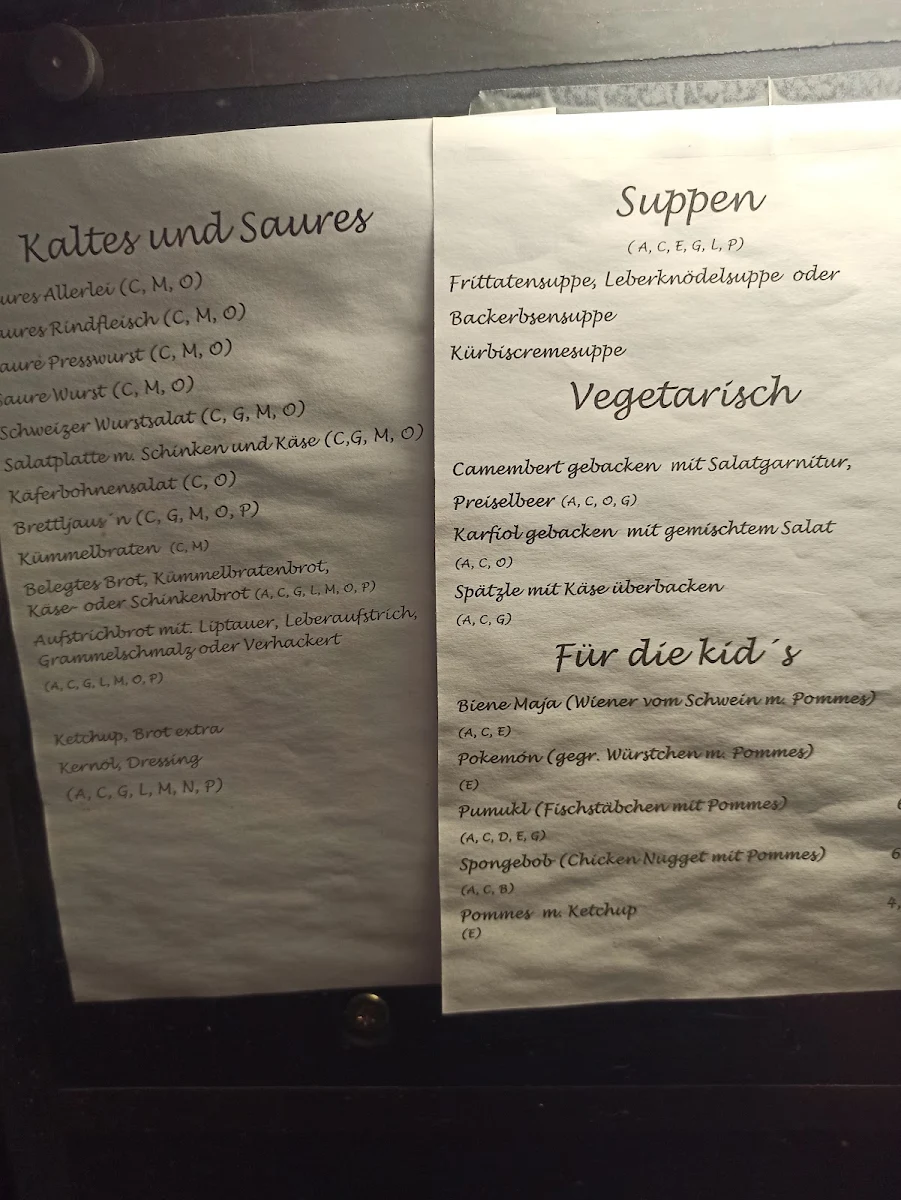 Kaltes und Saures
ures Allerlei (C, M, O)
ures Rindfleisch (C, M, O)
aure Presswurst (C, M, O)
Saure Wurst (C, M, O)
Schweizer Wurstsalat (C, G, M, O)
Salatplatte m. Schinken und Käse (C,G, M, O)
Käferbohnensalat (C, O)
Brettljaus´n (C, G, M, O, P)
Kümmelbraten (C, M)
Belegtes Brot, Kümmelbratenbrot,
Käse- oder Schinkenbrot (A, C, G, L, M, O, P)
Aufstrichbrot mit. Liptauer, Leberaufstrich,
Grammelschmalz oder Verhackert
(A, C, G, L, M, O, P)
Ketchup, Brot extra
Kernöl, Dressing
(A, C, G, L, M, N, P)
Suppen
( A, C, E, G, L, P)
Frittatensuppe, Leberknödelsuppe oder
Backerbsensuppe
Kürbiscremesuppe
Vegetarisch
Camembert gebacken mit Salatgarnitur,
Preiselbeer (A, C, O, G)
Karfiol gebacken mit gemischtem Salat
(A, C, O)
Spätzle mit Käse überbacken
(A, C, G)
Für die kid´s
Biene Maja (Wiener vom Schwein m. Pommes)
(A, C, E)
Pokemón (gegr. Würstchen m. Pommes)
(E)
Pumukl (Fischstäbchen mit Pommes)
(A, C, D, E, G)
Spongebob (Chicken Nugget mit Pommes) 6
(A, C, B)
Pommes m. Ketchup 4,
(E)